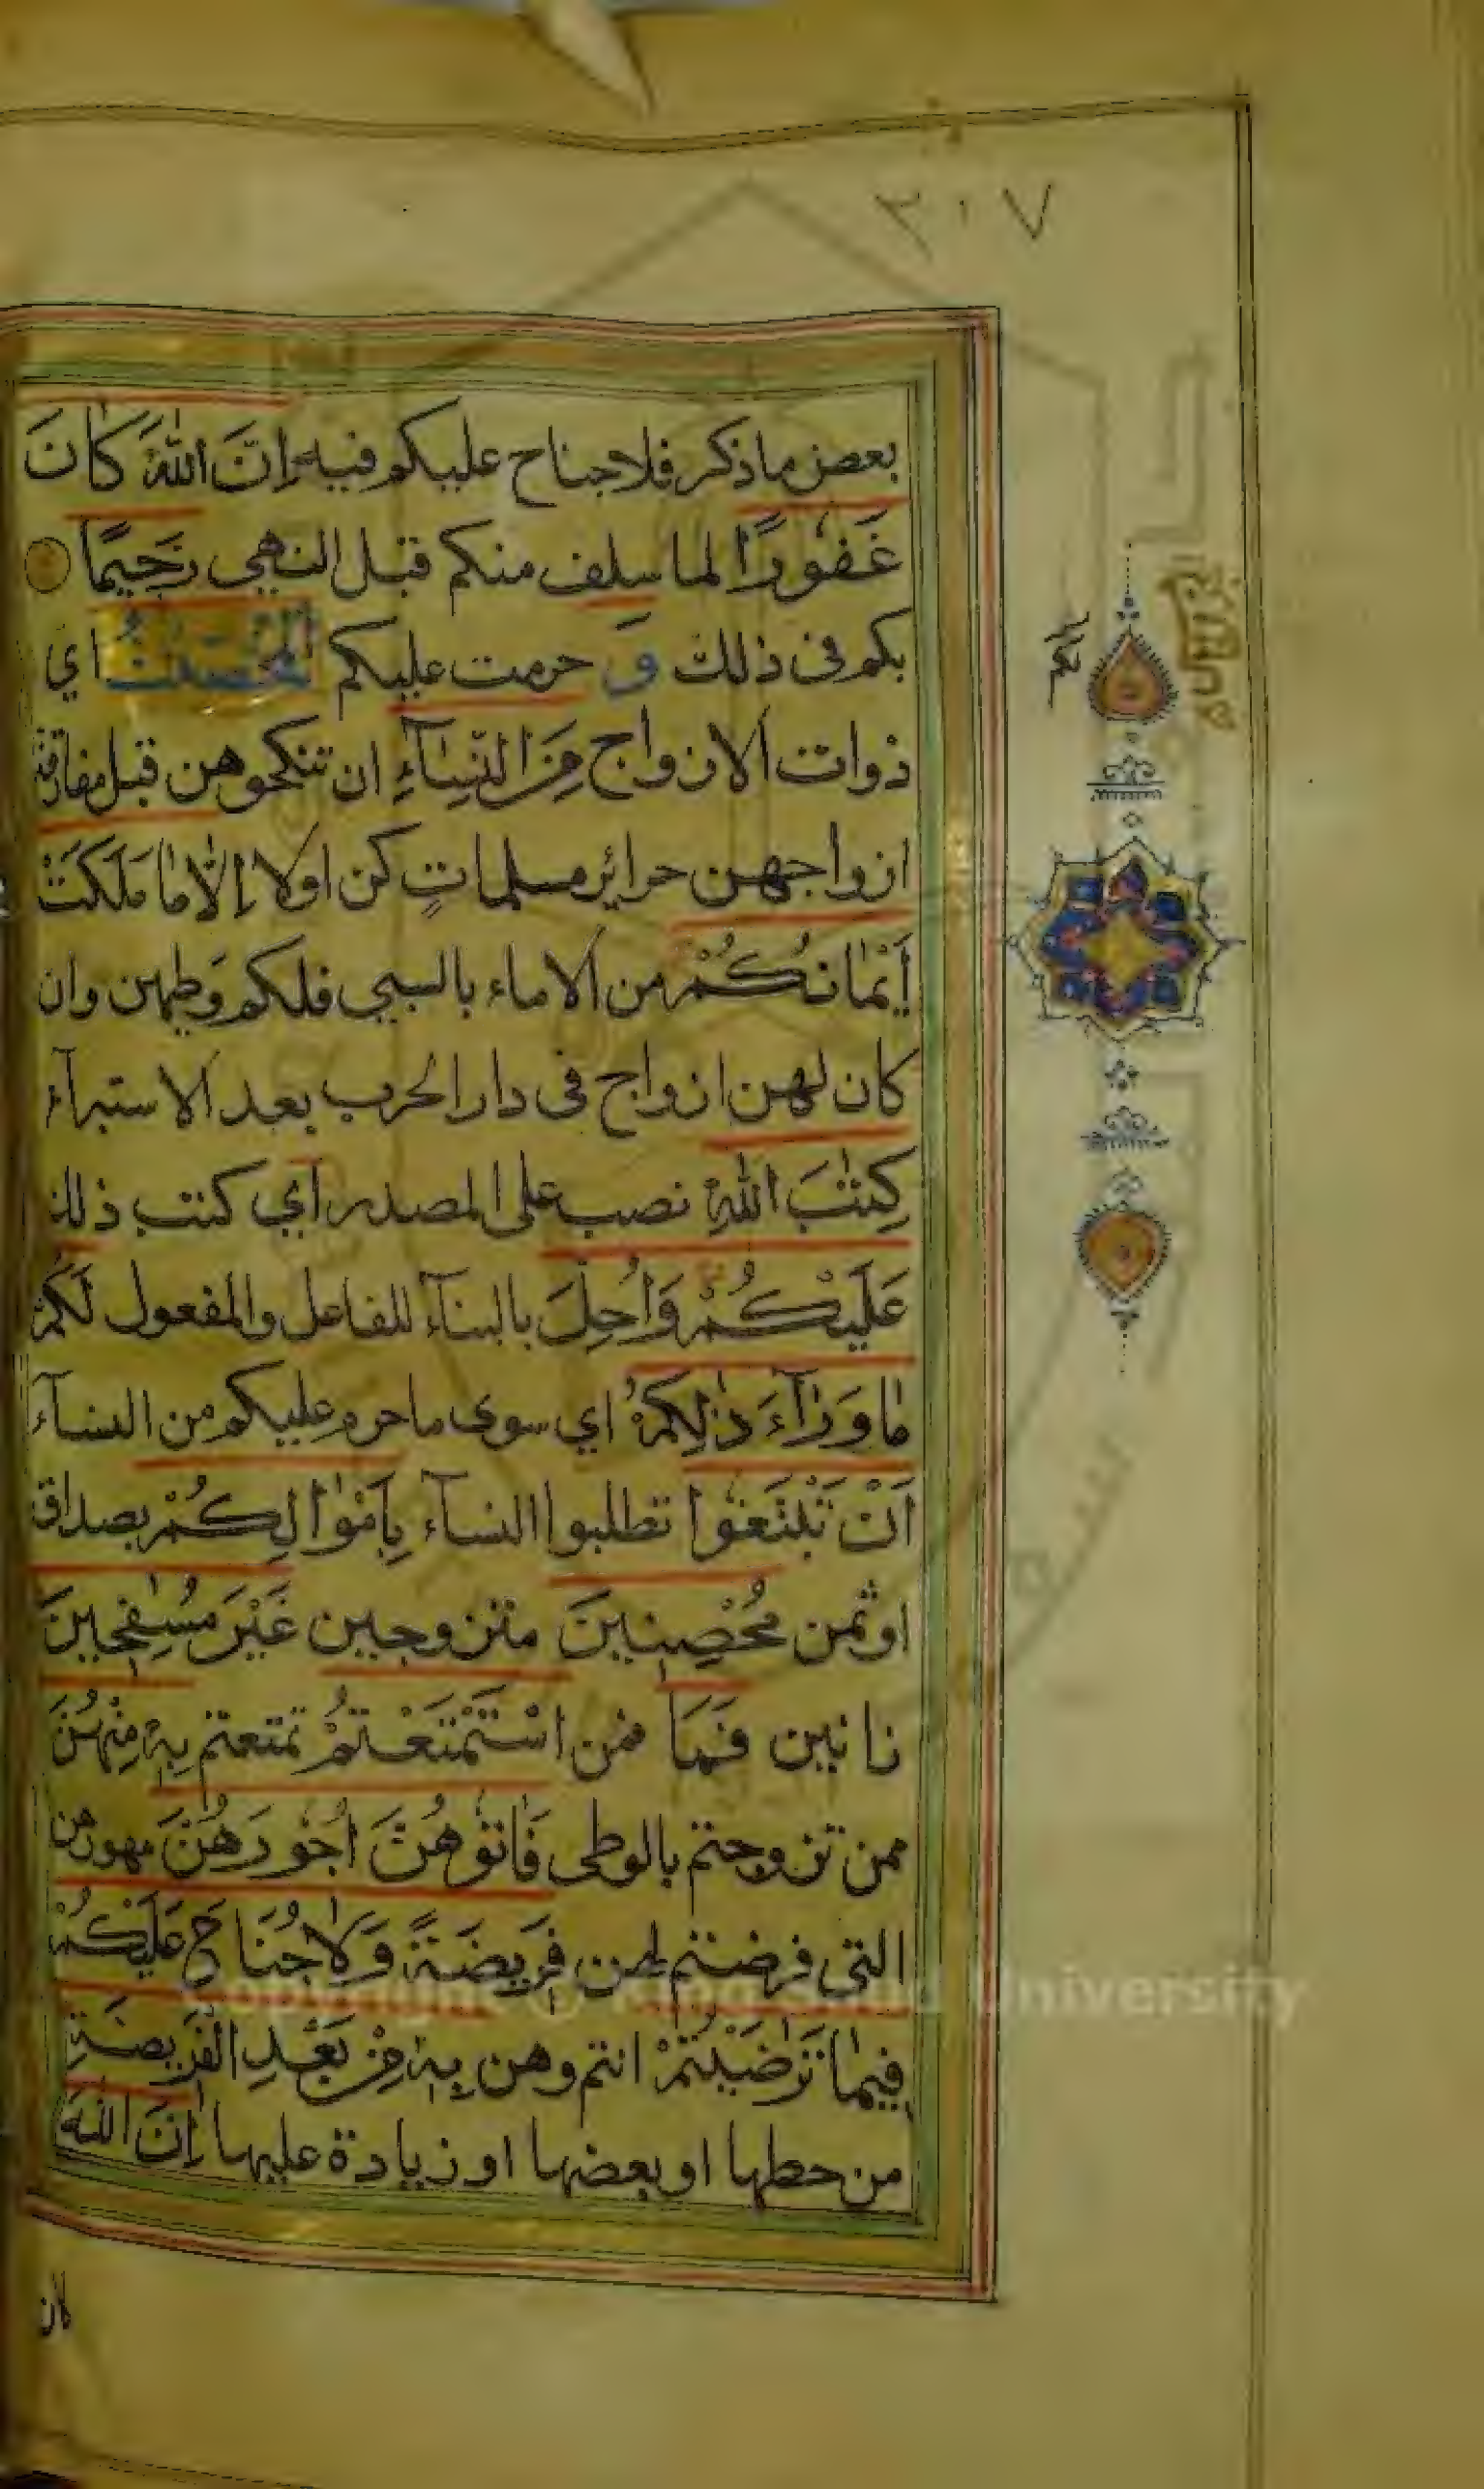 ٢٠٧
بعض ما ذكر فلا جناح عليكم فيه اِنَّ اللّٰهَ كَانَ
غَفُورًا لما سلف منكم قبل النهي رَحِيمًا
بكم فى ذلك وَ حرمت عليكم الْمُحْصَنٰتُ اي
ذوات الازواج مِنَ النِّسَآءِ ان تنكحوهن قبل مفارقة
ازواجهن حرائر مسلماتٍ كن اولا اِلَّا مَا مَلَكَتْ
أَيْمَانُكُمْ من الاماء بالسبي فلكم وَطيهن وان
كان لهن ازواج فى دار الحرب بعد الاستبرآء
كِتٰبَ اللّٰهِ نصب على المصدر اي كتب ذلك
عَلَيْكُمْ وَاُحِلَّ بالبنآء للفاعل والمفعول لَكُمْ
مَا وَرَآءَ ذٰلِكُمْ اي سوى ما حرم عليكم من النسآء
اَنْ تَبْتَغُوا تطلبوا النسآء بِاَمْوَالِكُمْ بصداق
او ثمن مُحْصِنِينَ متزوجين غَيْرَ مُسٰفِحِينَ
زانين فَمَا فمن اسْتَمْتَعْتُمْ تمتعتم بِهٖ مِنْهُنَّ
ممن تزوجتم بالوطى فَاٰتُوهُنَّ اُجُورَهُنَّ مهورهن
التى فرضتم لهن فَرِيضَةً وَلَا جُنَاحَ عَلَيْكُمْ
فِيمَا تَرٰضَيْتُمْ انتم وهن بِهٖ مِنْ بَعْدِ الْفَرِيضَةِ
من حطها او بعضها او زيادة عليها اِنَّ اللّٰهَ
كان
بكم
Copyright © King Saud University